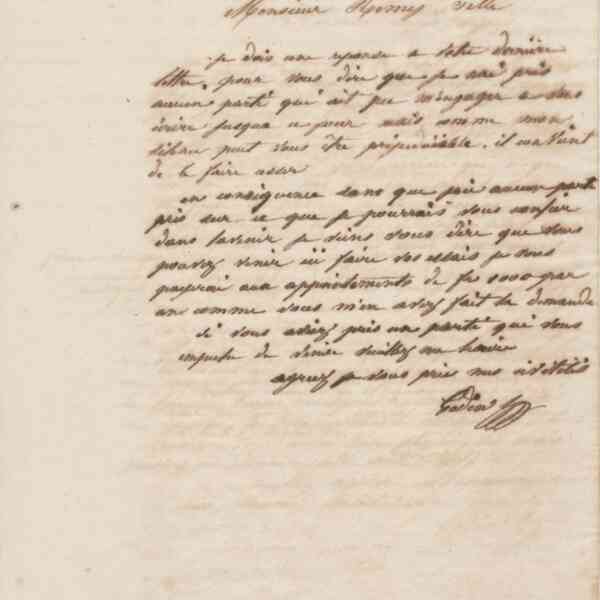 Monsieur Remy Lille
je dois une reponse a votre dernière
lettre, pour vous dire que je nai pris
aucun parti qui ait pu m'engager a vous
écrire jusqua ce jour mais comme mon
silence peut vous être préjudiciable, il convient
de le faire cesser
en conséquence sans que j'aie aucun parti
pris sur ce que je pourrais vous confier
dans lavenir je viens vous dire que vous
pouvez venir ici faire vos essais je vous
payerai aux appointements de fs 5000 par
an comme vous m'en avez fait la demande
si vous aviez pris un parti qui vous
empeche de venir veuillez me lecrire
agreez je vous prie mes civilités
Godin